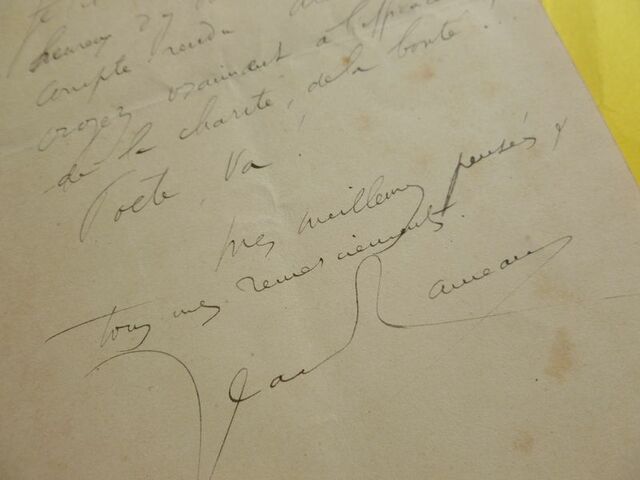 heureux d'y
compte rendu
croyez vraiment à l'efficacité
de la charité, de la bonté...
Poète, va !
Mes meilleures pensées &
tous mes remerciements.
Jean Rameau